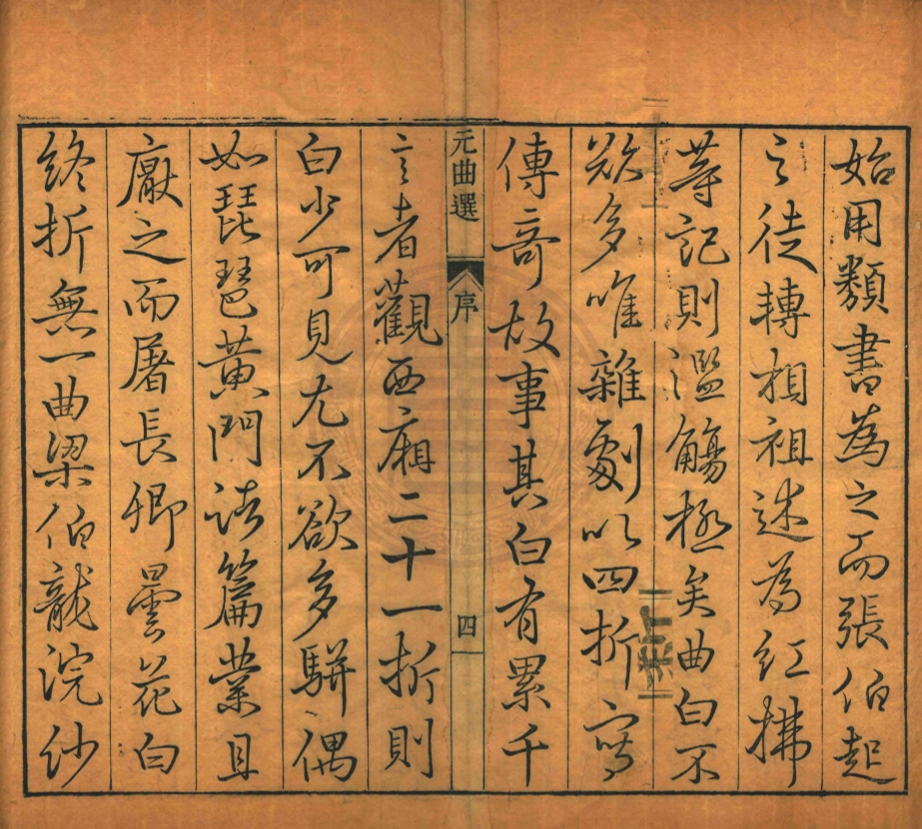 始用類書為之而張伯起
之徒轉相祖述為紅拂
等記則濫觴極矣曲白不
欲多唯雜劇以四折寫
傳奇故事其白有累千
元曲選
序
四
言者觀西廂二十一折則
白少可見尤不欲多駢偶
如琵琶黃門諸篇業且
厭之而屠長卿曇花白
終折無一曲梁伯龍浣紗